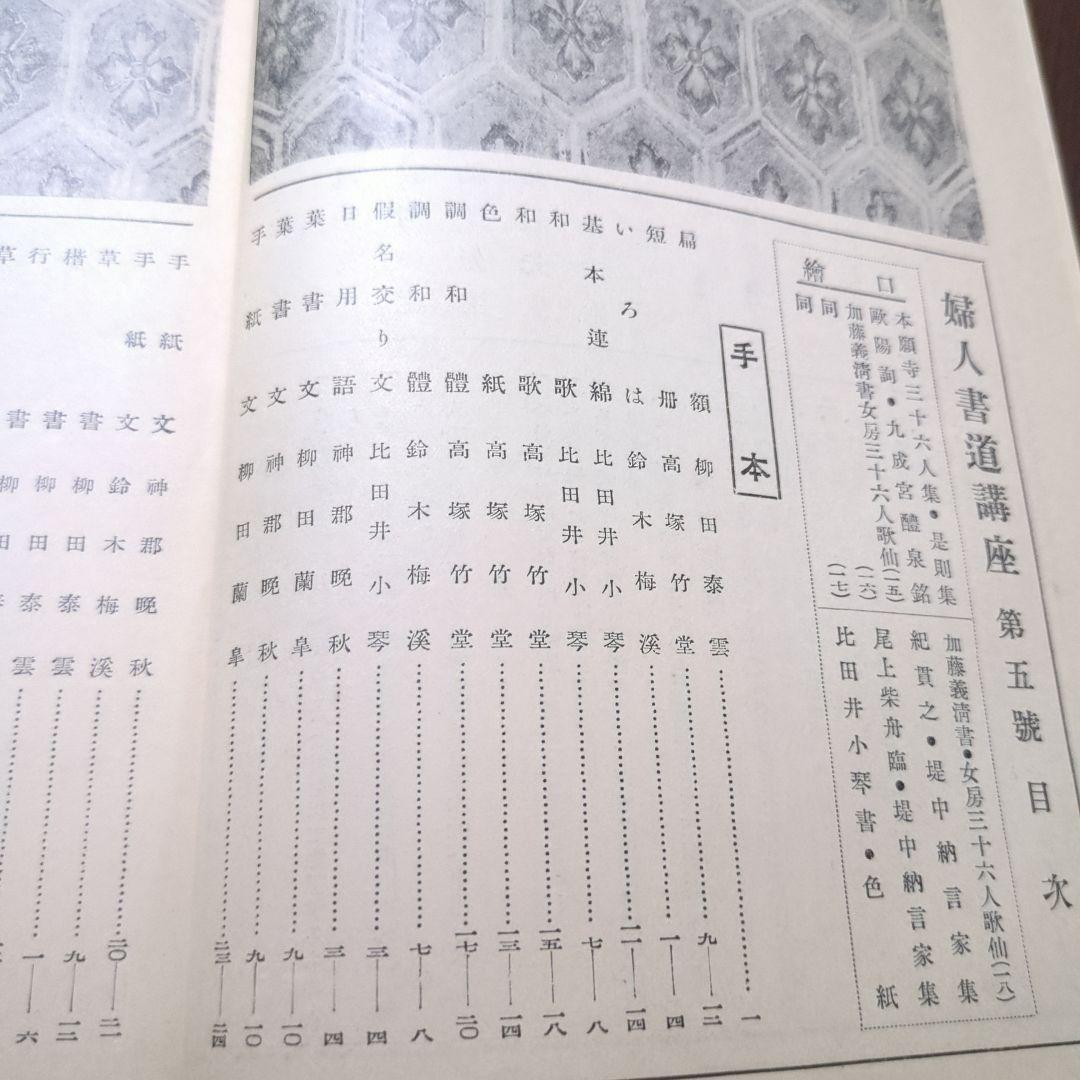 婦人書道講座 第五號 目次
口繪
本願寺三十六人集・是則集
歐陽詢・九成宮醴泉銘
加藤義淸書女房三十六人歌仙(一五)
同 (一六)
同 (一七)
加藤義淸書・女房三十六人歌仙(一八)
紀貫之・堤中納言家集
尾上柴舟臨・堤中納言家集
比田井小琴書・色紙
手本
扁額 柳田泰雲………一
短册 高塚竹堂………九—一二
いろは 鈴木梅溪………一—四
基本連綿 比田井小琴………一一—一四
和歌 比田井小琴………七—八
和歌 高塚竹堂………一五—一八
色紙 高塚竹堂………一三—一四
調和體 高塚竹堂………一七—二〇
調和體 鈴木梅溪………七—八
假名交り文 比田井小琴………三—四
日用語 神郡晩秋………三—四
葉書文 柳田蘭皐………九—一〇
葉書文 神郡晩秋………九—一〇
手紙文 柳田蘭皐………二三—二四
手紙文 神郡晩秋………二〇—二一
手紙文 鈴木梅溪………九—一二
草書 柳田泰雲………一—六
楷書 柳田泰雲
行書 柳田
草